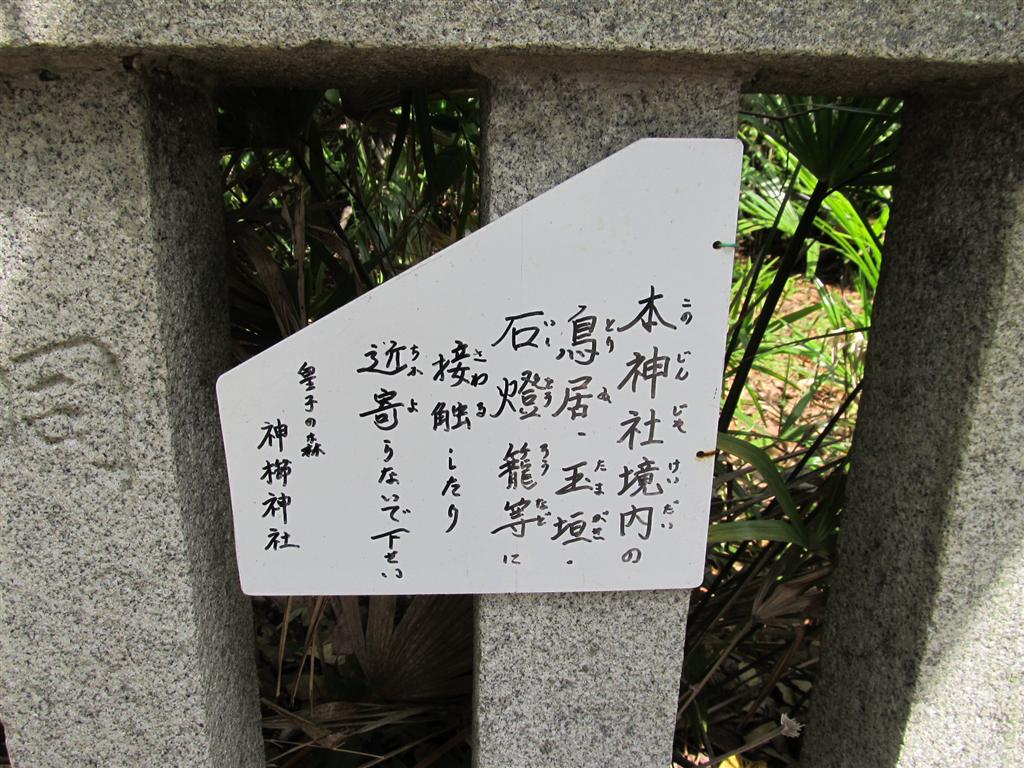 本神社境内の
鳥居・玉垣・
石燈籠等に
接触したり
近寄らないで下せい
皇子の森
神櫛神社